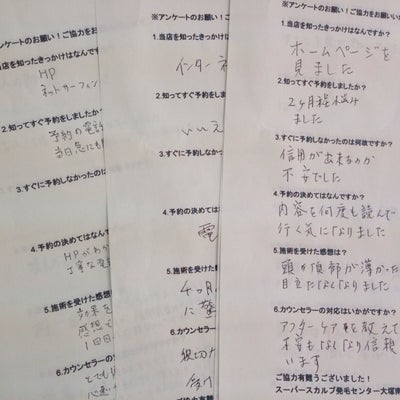 ンケートのお願い!ご協力をお
当店を知ったきっかけはなんです
HP
ネットサーフィン
2.知ってすぐ予約をしましたか?
予約の電
当日急にも
3.すぐに予約しなかったのは
4.予約の決めてはなん
HPがわか
丁寧な
5.施術を受けた感想
効果を
感想で
1回目
6.カウンセラーの
とても
※アンケートのお願い!ご協力をお
1.当店を知ったきっかけはなんです
インターネ
2.知ってすぐ予約をしましたか?
いいえ
3.すぐに予約しなかった
4.予約の決めては
電
5.施術を受けた
4ヶ月
に驚
6.カウンセラ
親切
ご協力有難
※アンケートのお願い!ご協力をお願い
1.当店を知ったきっかけはなんですか?
ホームページを
見ました
2.知ってすぐ予約をしましたか?
2ヶ月程悩み
ました
3.すぐに予約しなかったのは何故ですか?
信用が出来るのか
不安でした
4.予約の決めてはなんですか?
内容を何度も読んで
行く気になりました
5.施術を受けた感想は?
頭の頂部が薄かった
目立たなくなりました
6.カウンセラーの対応はいかがですか?
アフターケアも教えて
不安もなくなり信頼
います
ご協力有難うございました!
スーパースカルプ発毛センター大塚南